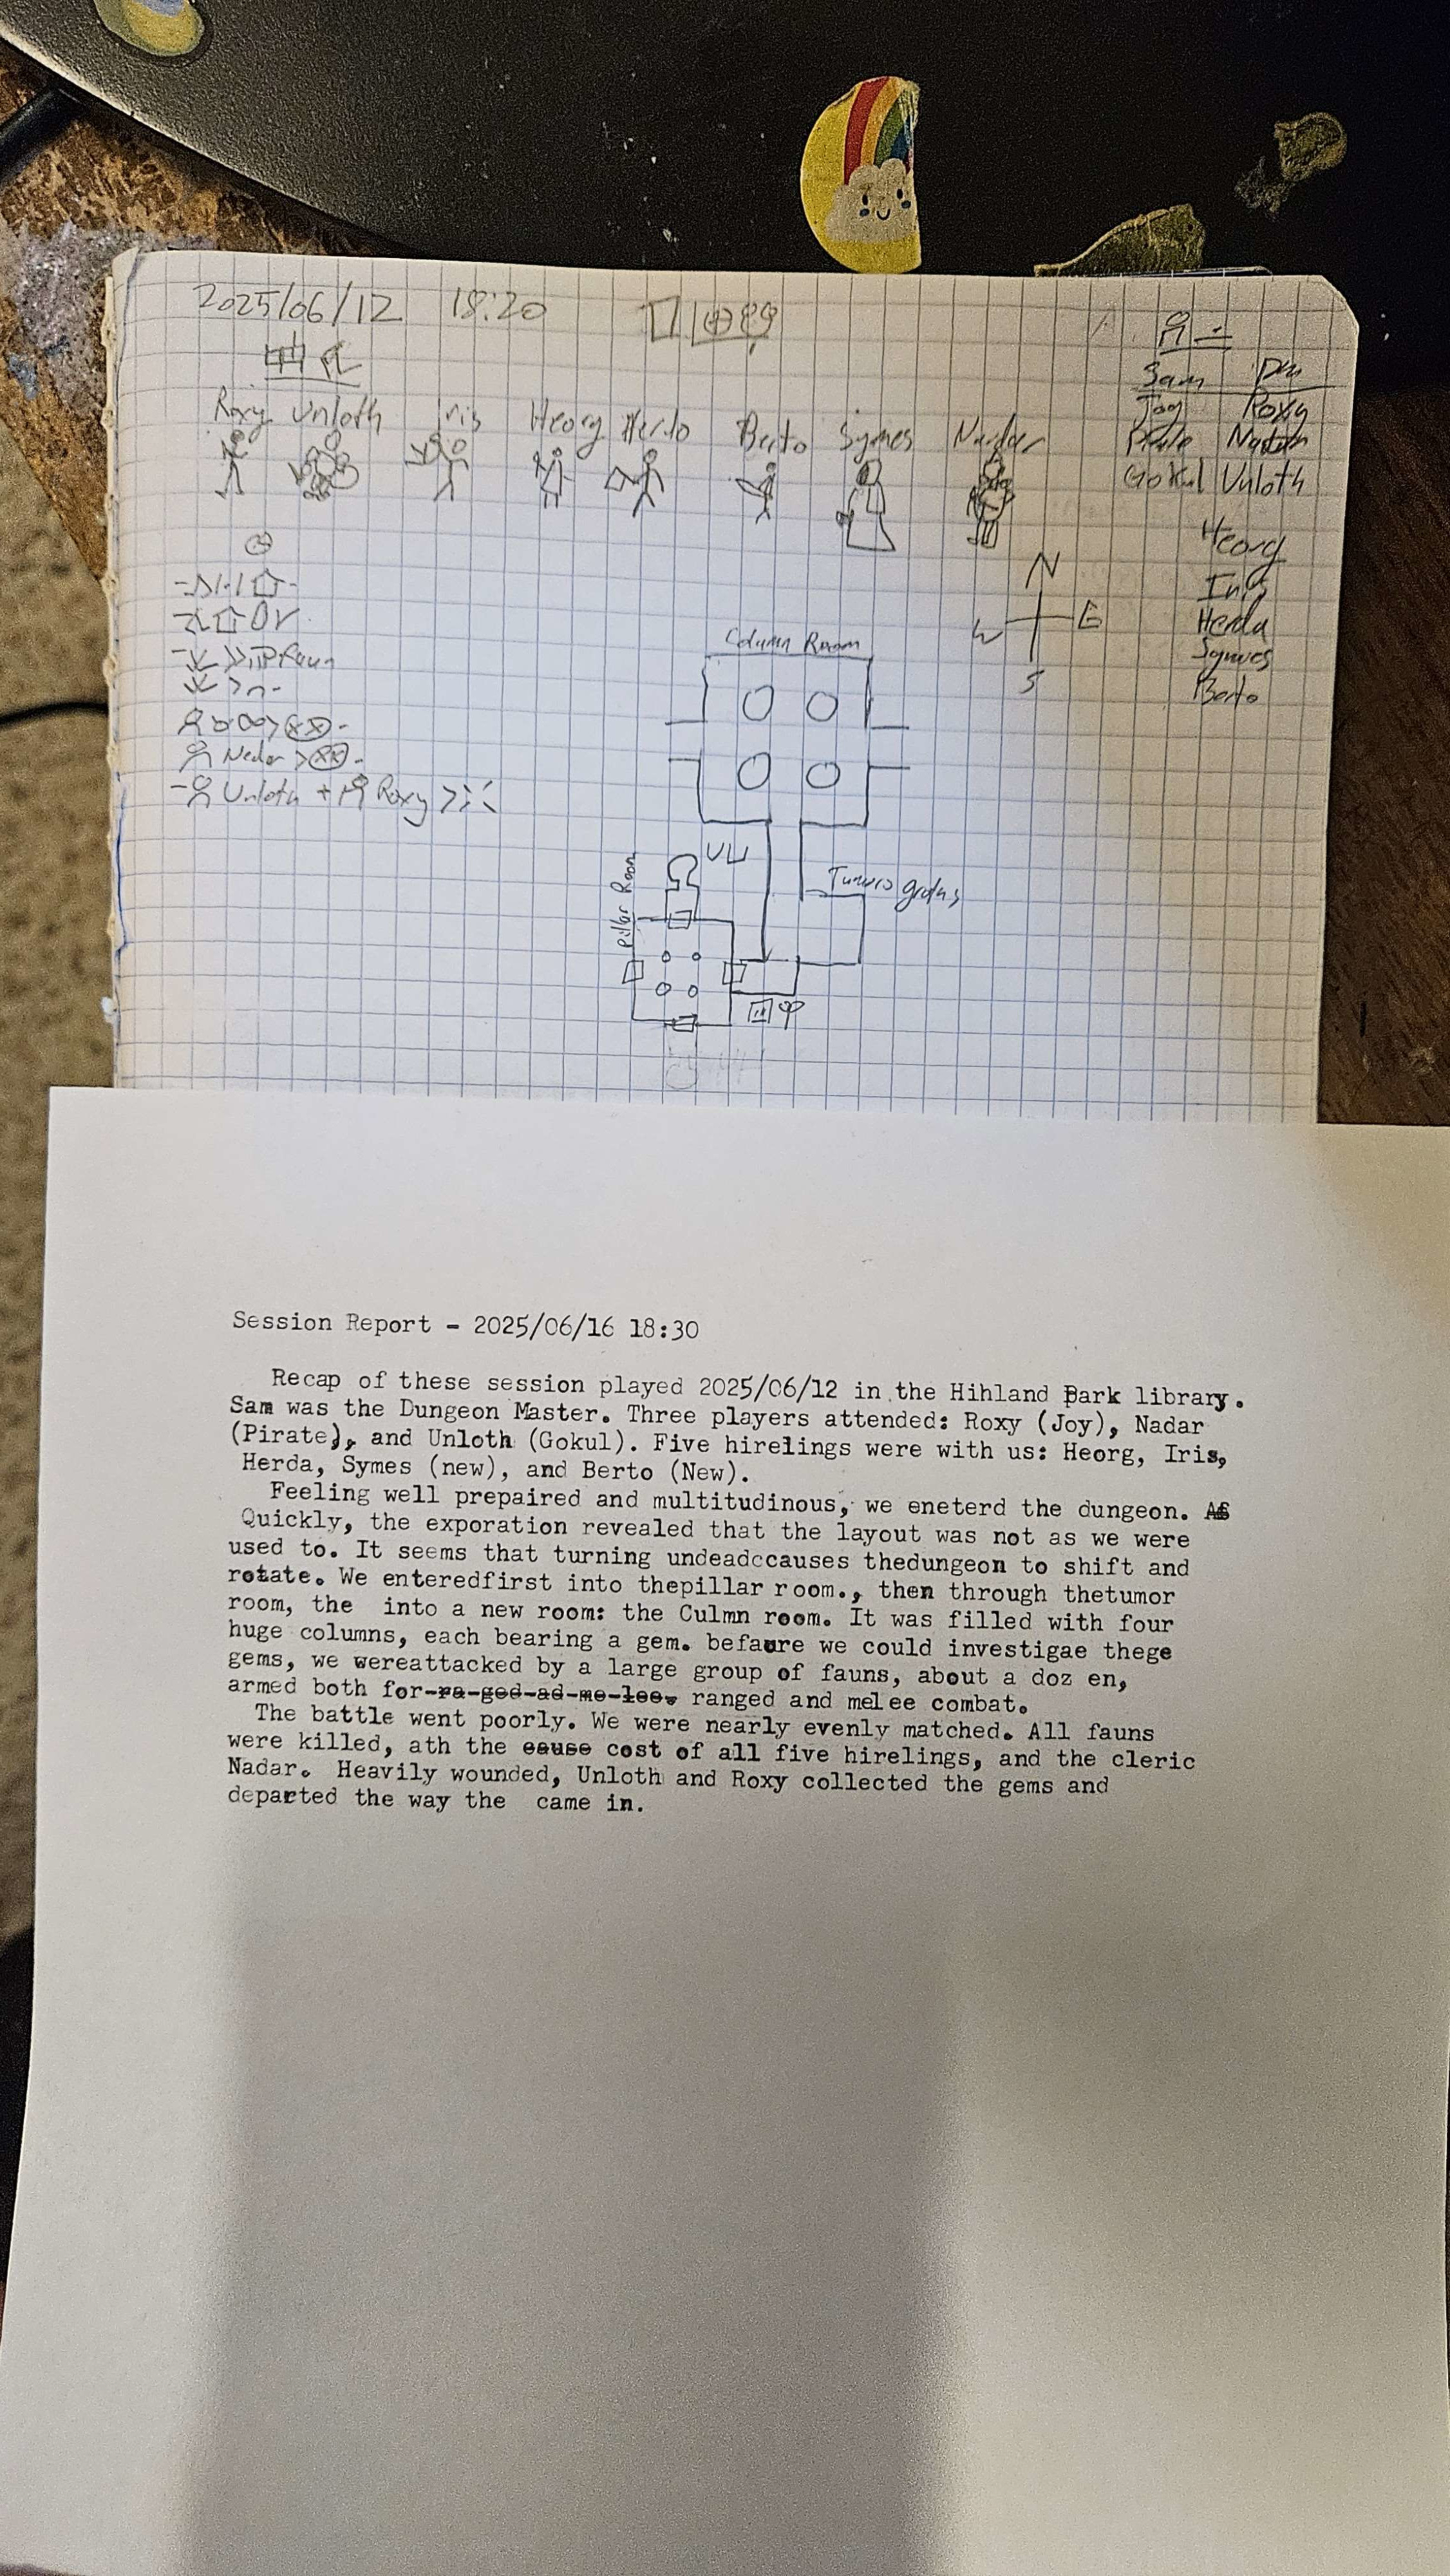 2025/06/12 18:20
Sam DM
Roxy Unloth Iris Heorg Herda Berto Symes Nadar
Joy Roxy
Pirate Nadar
Gokul Unloth
Heorg
Iris
Herda
Symes
Berto
N
W E
S
Faun
Nedar
Unloth + Roxy
Column Room
Pillar Room
Session Report - 2025/06/16 18:30
Recap of these session played 2025/06/12 in the Hihland Park library.
Sam was the Dungeon Master. Three players attended: Roxy (Joy), Nadar
(Pirate), and Unloth (Gokul). Five hirelings were with us: Heorg, Iris,
Herda, Symes (new), and Berto (New).
Feeling well prepaired and multitudinous, we eneterd the dungeon. As
Quickly, the exporation revealed that the layout was not as we were
used to. It seems that turning undeadccauses thedungeon to shift and
rotate. We enteredfirst into thepillar room., then through thetumor
room, the into a new room: the Culmn room. It was filled with four
huge columns, each bearing a gem. befaure we could investigae thege
gems, we wereattacked by a large group of fauns, about a doz en,
armed both for-ra-ged-ad-me-lee. ranged and melee combat.
The battle went poorly. We were nearly evenly matched. All fauns
were killed, ath the cause cost of all five hirelings, and the cleric
Nadar. Heavily wounded, Unloth and Roxy collected the gems and
departed the way the came in.